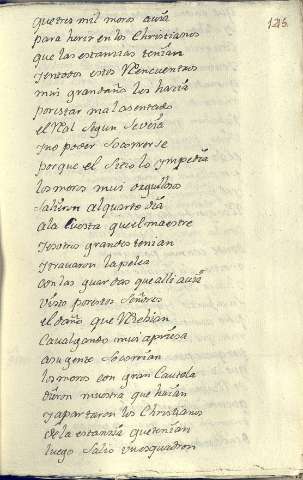 125.
que tres mil moros auia
para herir en los Christianos
que las estanzias tenian
y en todos estos Rencuentros
mui gran daño les hazia
por estar mal asentado
el Real segun se veia
y no poder socorrerse
por que el sitio lo ympedia
los moros mui orgullosos
salieron al quarto dia
a la Cuesta que el maestre
y otros grandes tenian
y trauaron la pelea
con las guardas que alli auia
visto por estos Señores
el daño que Rezebian
Caualgando mui apriesa
a su gente socorrian
los moros con gran Cautela
dieron muestra que huian
y apartaron los Christianos
de la estanzia que tenian
luego salio un esquadron